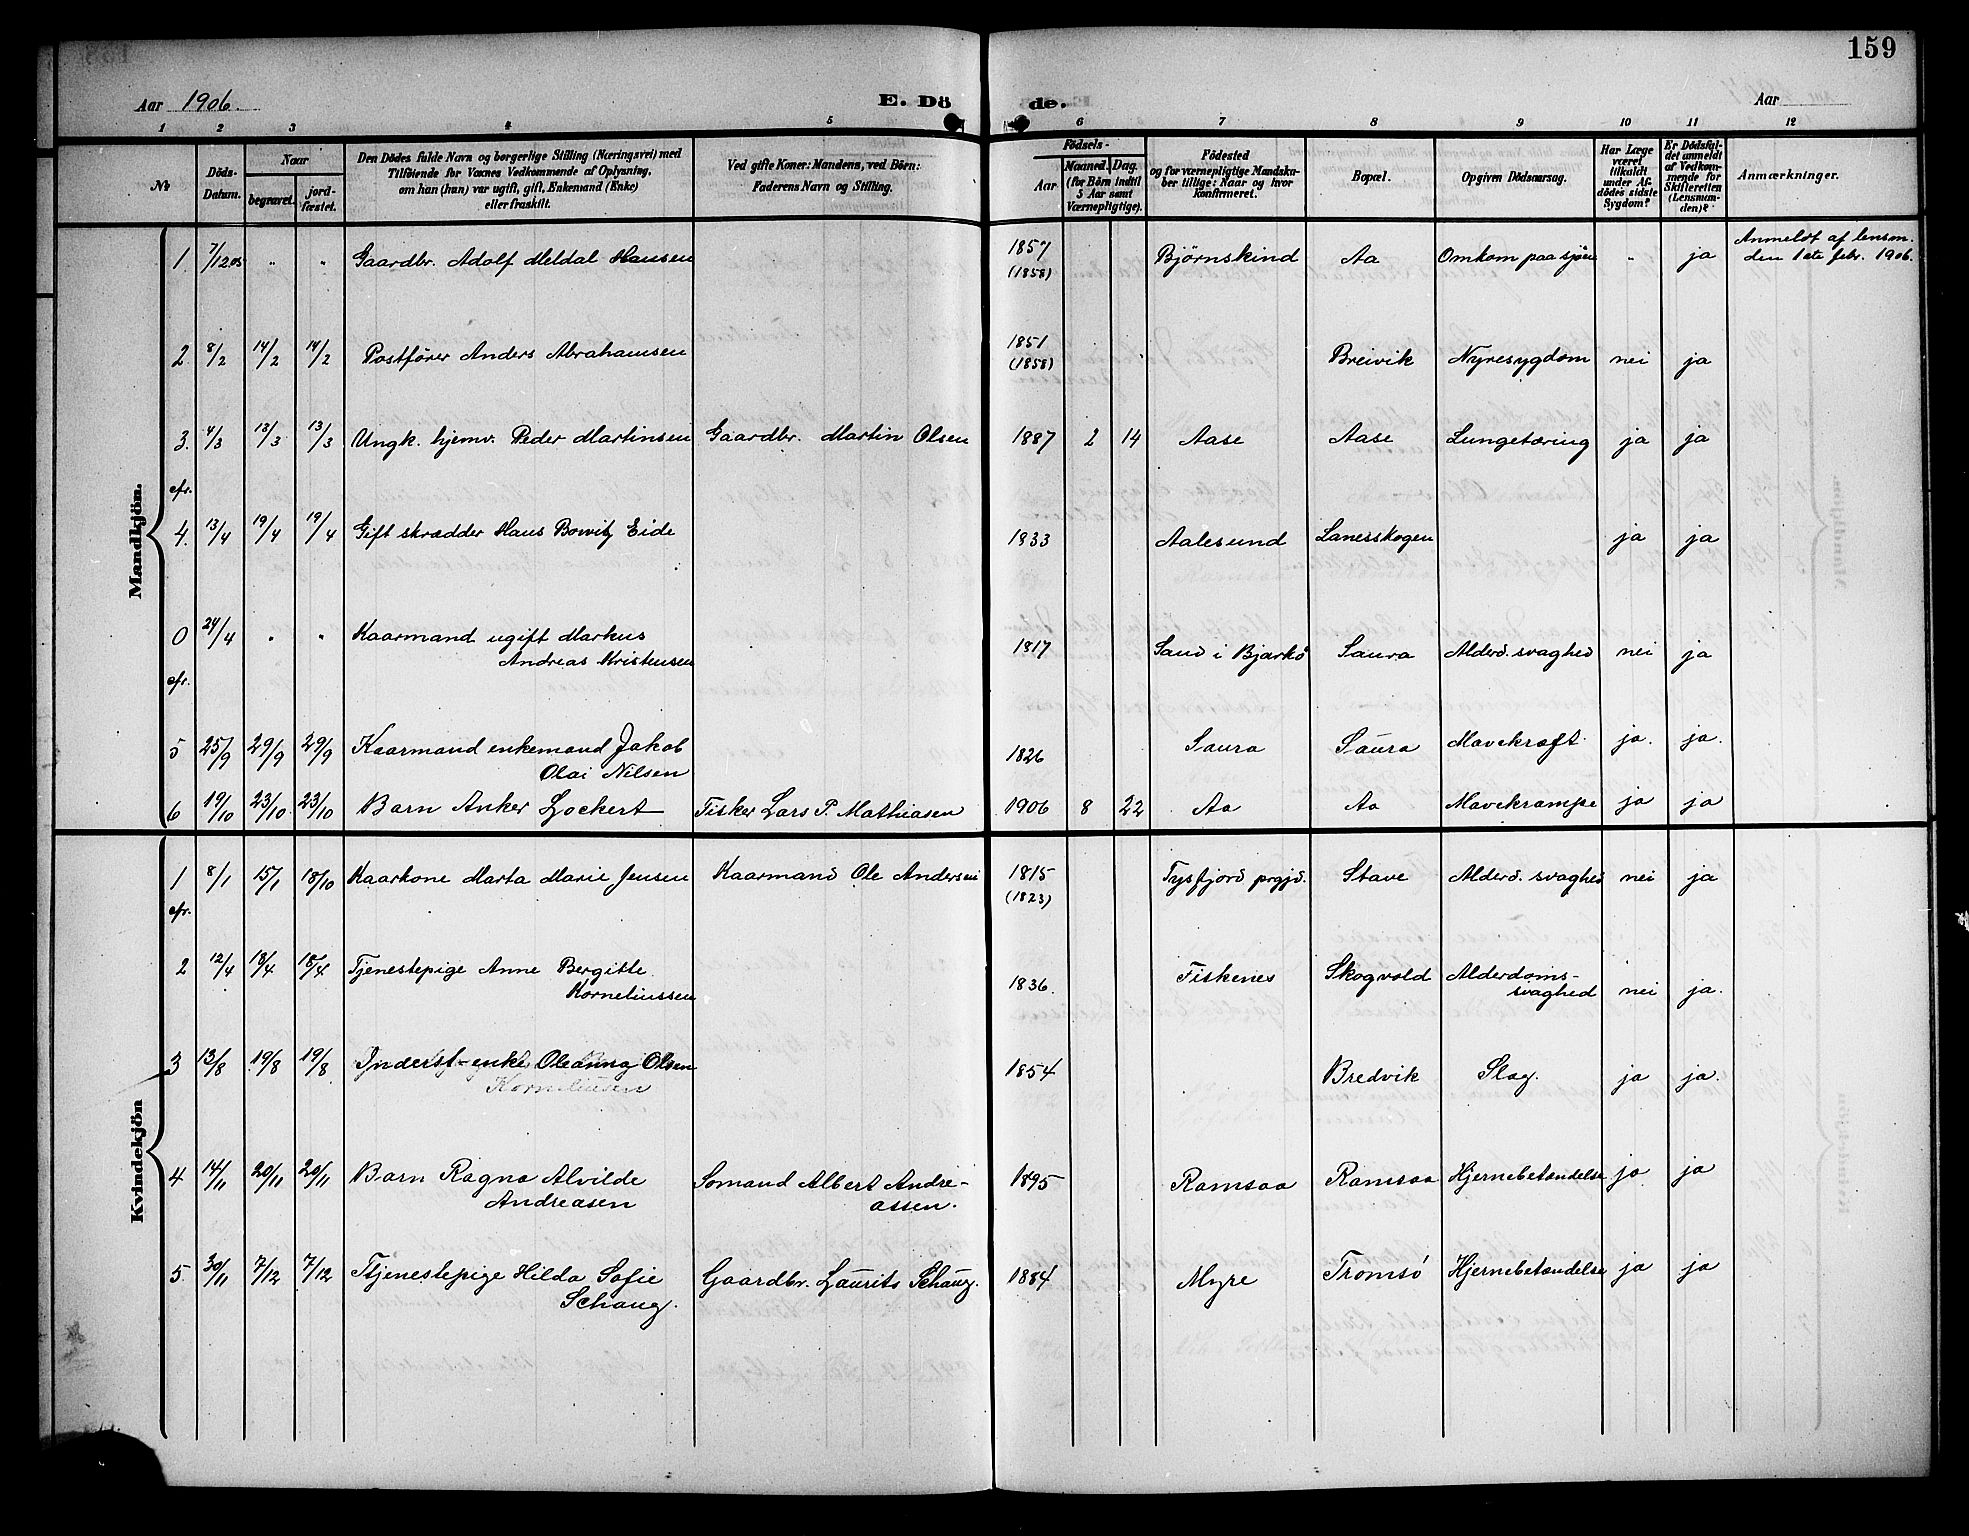 159
Aar 1906. E. Dö de. Aar
1 2 3 4 5 6 7 8 9 10 11 12
№ Döds-Datum. Naar begravet. jord-fæstet. Den Dödes fulde Navn og borgerlige Stilling (Næringsvei) med Tilföiende for Voxnes Vedkommende af Oplysning, om han (hun) var ugift, gift, Enkemand (Enke) eller fraskilt. Ved gifte Koner: Mandens, ved Börn: Faderens Navn og Stilling. Födsels- Aar Maaned. Dag. (for Börn indtil 5 Aar samt Værnepligtige). Födested og for værnepligtige Mandskaber tillige: Naar og hvor konfirmeret. Bopæl. Opgiven Dödsaarsag. Har Læge været tilkaldt under Afdödes sidste Sygdom? Er Dödsfaldet anmeldt af Vedkommende for Skifteretten (Lensmanden)? Anmærkninger.
Mandkjön.
1. 7/12 05 " " Gaardbr. Adolf Meldal Hansen 1857 (1858) Bjørnskind Aa Omkom paa sjøen " ja Anmeldt af lensm. den 1ste febr. 1906.
2. 8/2 14/2 14/2 Postfører Anders Abrahamsen 1851 (1858) Breivik Nyresygdom nei ja
3. 4/3 13/3 13/3 Ungk. hjemv. Peder Martinsen Gaardbr. Martin Olsen 1887 2 14 Aase Aase Lungetæring ja ja
cfr.
4. 13/4 19/4 19/4 Gift skrædder Hans Eide 1833 Aalesund Lanesskogen ja ja
0 24/4 " " Kaarmand ugift Markus
Andreas Kristensen 1817 Sand i Bjarkø Saura Alderd. svaghed nei ja
cfr.
5 25/9 29/9 29/9 Kaarmand enkemand Jakob
Olai Nilsen 1826 Saura Saura Mavekræft ja. ja.
6 19/10 23/10 23/10 Barn Anker Lockert Fisker Lars P. Mathiasen 1906 8 22 Aa Aa Mavekrampe ja ja
Kvindekjön
1 8/1 15/1 18/10 Kaarkone Marta Marie Jensen Kaarmand Ole Andersen 1815 (1823) Tysfjord prgjd. Stave Alderd. svaghed nei ja
cfr.
2 12/4 18/4 18/4 Tjenestepige Anne Bergitte
Korneliussen 1836. Fiskenes Skogvold Alderdoms-
svaghed nei ja.
3 13/8 19/8 19/8 Inderst-enke Oleanna Olsen
Korneliusen 1854 Bredvik Slag. ja ja.
4 14/11 20/11 20/11 Barn Ragna Alvilde
Andreasen Somand Albert Andre-
assen. 1895 Ramsaa Ramsaa Hjernebetændelse ja ja
5. 30/11 7/12 7/12 Tjenestepige Hilda Sofie
Schaug. Gaardbr. Laurits Schaug. 1884 Myre Tromsø Hjernebetændelse ja ja